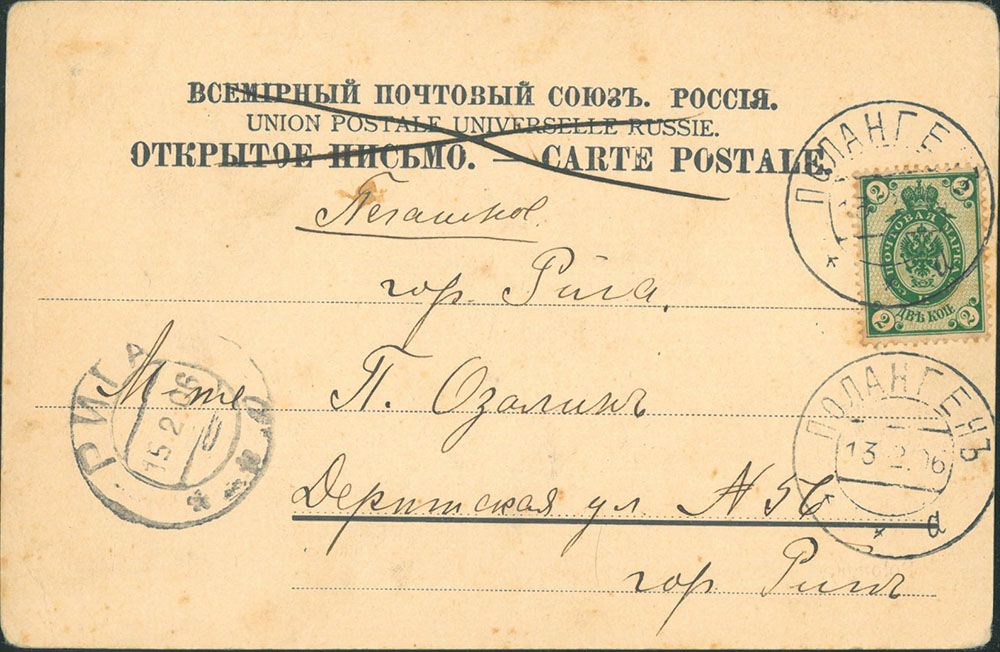 ВСЕМІРНЫЙ ПОЧТОВЫЙ СОЮЗЪ. РОССІЯ.
UNION POSTALE UNIVERSELLE RUSSIE.
ОТКРЫТОЕ ПИСЬМО. — CARTE POSTALE.
ПОЛАНГЕ
2 2
ПОЧТОВАЯ МАРКА
ДВѢ КОП.
2 2
гор. Рига.
РИГА
15.2.06
Mme П. Озалинъ
ПОЛАНГЕНЪ
13.2.06
а
Дерптская ул. № 56
гор.